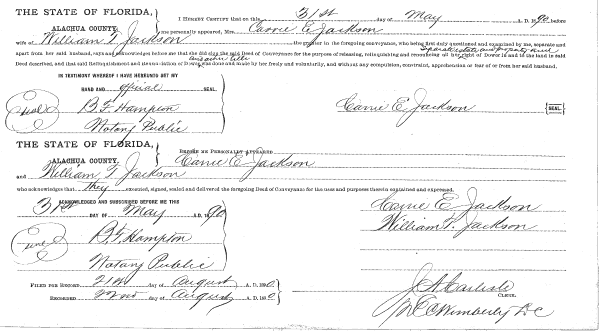 THE STATE OF FLORIDA,
ALACHUA COUNTY.
I HEREBY CERTIFY that on this 31st day of May A. D. 1890 before
me personally appeared, Mrs. Carrie E Jackson
wife of William T. Jackson the grantor in the foregoing conveyance, who being first duly questioned and examined by me, separate and
apart from her said husband, acknowledged before me that she did sign the said Deed of Conveyance for the purpose of releasing, relinquishing and renouncing all her right of Dower in and to the land in said
Deed described, and that said Relinquishment and Renunciation of Dower was done and made by her freely and voluntarily, and without any compulsion, constraint, apprehension or fear of or from her said husband.
IN TESTIMONY WHEREOF I HAVE HEREUNTO SET MY
HAND AND official SEAL.
Seal
B. F. Hampton
Carrie E. Jackson
SEAL
Notary Public
THE STATE OF FLORIDA,
ALACHUA COUNTY.
BEFORE ME PERSONALLY APPEARED
Carrie E. Jackson
and William T. Jackson
who acknowledges that they executed, signed, sealed and delivered the foregoing Deed of Conveyance for the uses and purposes therein contained and expressed.
ACKNOWLEDGED AND SUBSCRIBED BEFORE ME THIS
31st DAY OF May A. D. 1890
Carrie E. Jackson
William T. Jackson
B. F. Hampton
Notary Public
FILED FOR RECORD 21st day of August A. D. 1890
RECORDED 22nd day of August A. D. 1890
J. A. Carlisle
CLERK.
Wimberly D C